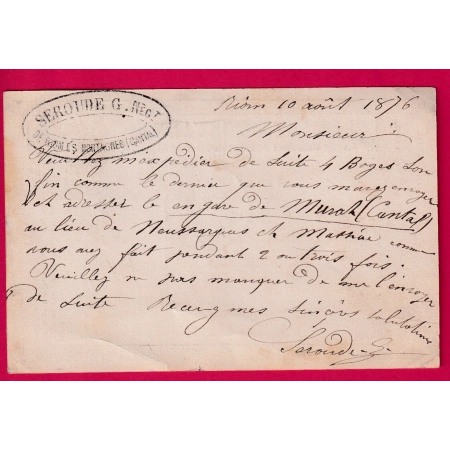 SEROUDE G. NEGT
DE RIOM LES MONTAGNES (CANTAL)
Riom 10 août 1876
Monsieur
Veuillez m'expédier de suite 4 Bages Son
fin comme le dernier que vous m'avez envoyer
et adresser le en gare de Murat (Cantal)
au lieu de Neussargues et Massiac comme
vous avez fait pendant 2 ou trois fois.
Veuillez ne pas manquer de me l'envoyer
de suite Recevez mes sincères salutations
Seroude G